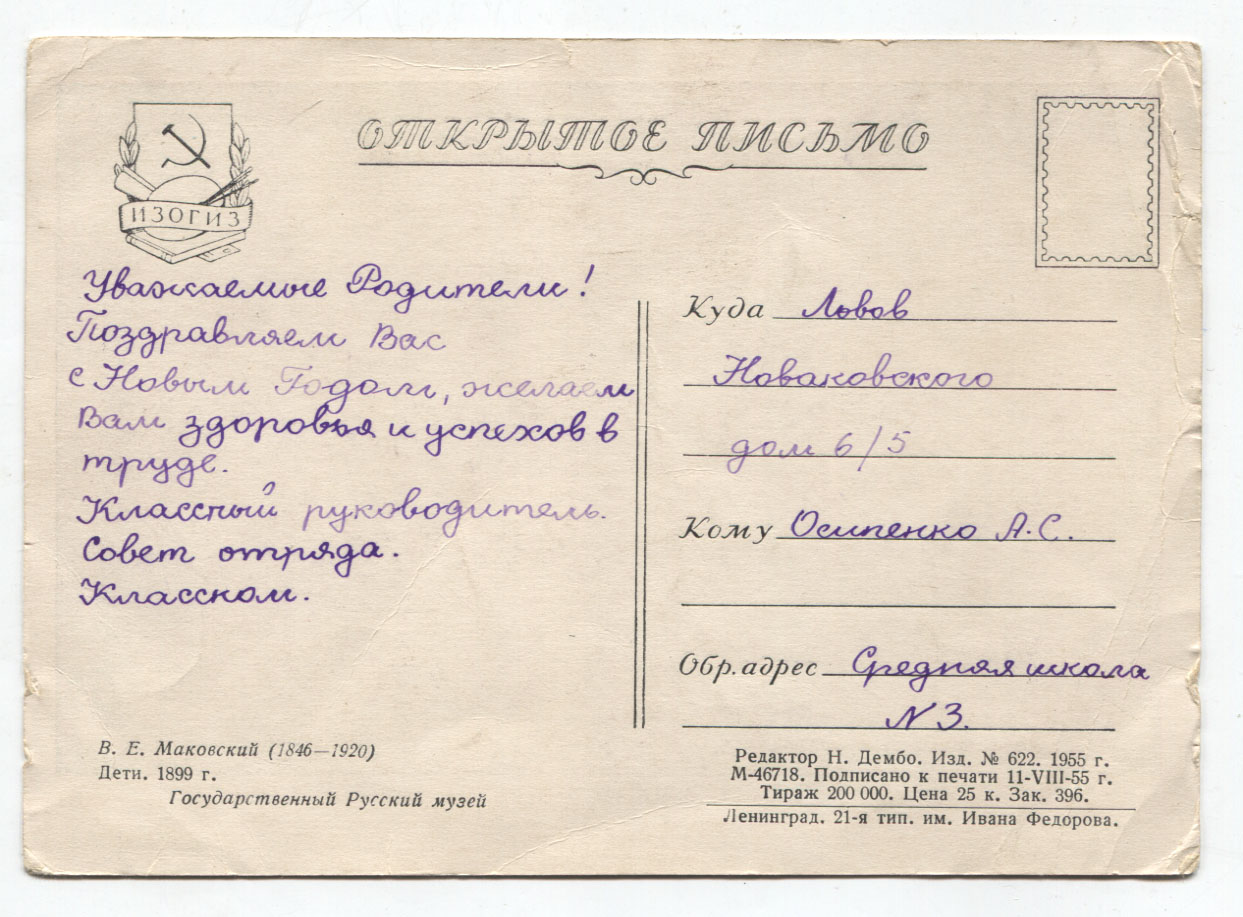 ОТКРЫТОЕ ПИСЬМО
ИЗОГИЗ
Уважаемые Родители!
Поздравляем Вас
с Новым Годом, желаем
Вам здоровья и успехов в
труде.
Классный руководитель.
Совет отряда.
Класском.
В. Е. Маковский (1846—1920)
Дети. 1899 г.
Государственный Русский музей
Куда Львов
Новаковского
дом 6/5
Кому Осипенко А.С.
Обр. адрес Средняя школа
N 3.
Редактор Н. Дембо. Изд. № 622. 1955 г.
М-46718. Подписано к печати 11-VIII-55 г.
Тираж 200 000. Цена 25 к. Зак. 396.
Ленинград. 21-я тип. им. Ивана Федорова.